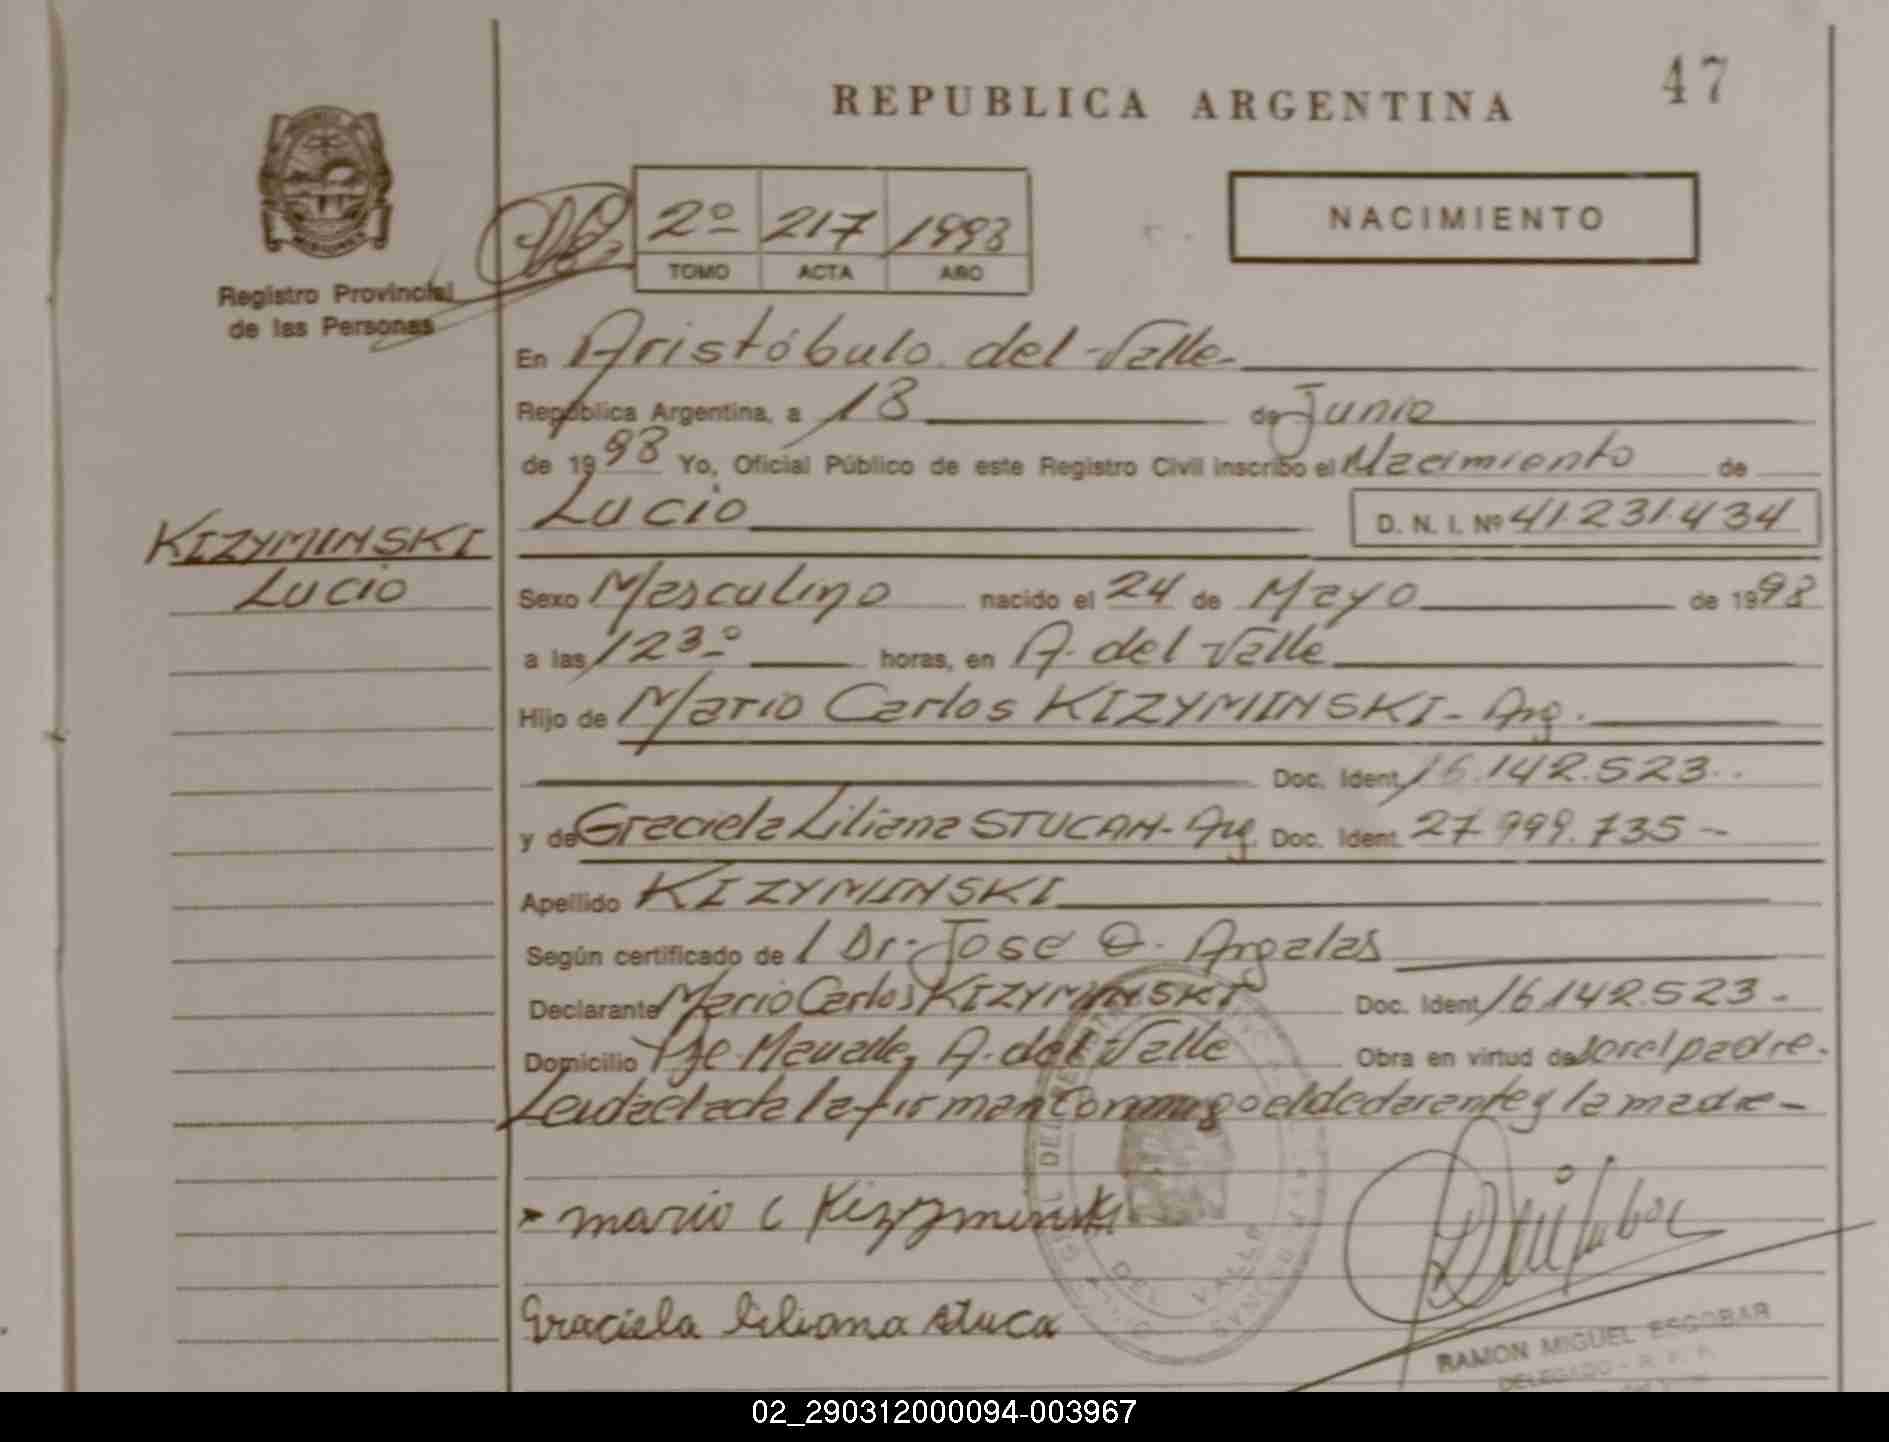 47
REPUBLICA ARGENTINA
2º 217 1998
TOMO ACTA AÑO
NACIMIENTO
Registro Provincial
de las Personas
En Aristóbulo del Valle
República Argentina, a 18 de Junio
de 1998 Yo, Oficial Público de este Registro Civil inscribo el Nacimiento de
Lucio D. N. I. Nº 41.231.434
KIZYMINSKI
Lucio
Sexo Masculino nacido el 24 de Mayo de 1998
a las 123º horas, en A. del Valle
Hijo de Mario Carlos KIZYMINSKI - Arg.
Doc. Ident. 16.142.523
y de Graciela Liliana STUCAN - Arg. Doc. Ident. 27.999.735
Apellido KIZYMINSKI
Según certificado de 1 Dr. Jose O. Argalas
Declarante Mario Carlos KIZYMINSKI Doc. Ident. 16.142.523
Domicilio A. del Valle Obra en virtud de ser el padre.
Leida el acta la firman conmigo el declarante y la madre
mario c Kizyminski
Graciela liliana stuca
DEL VALLE
RAMON MIGUEL ESCOBAR
DELEGADO - R. P. P.
02_290312000094-003967